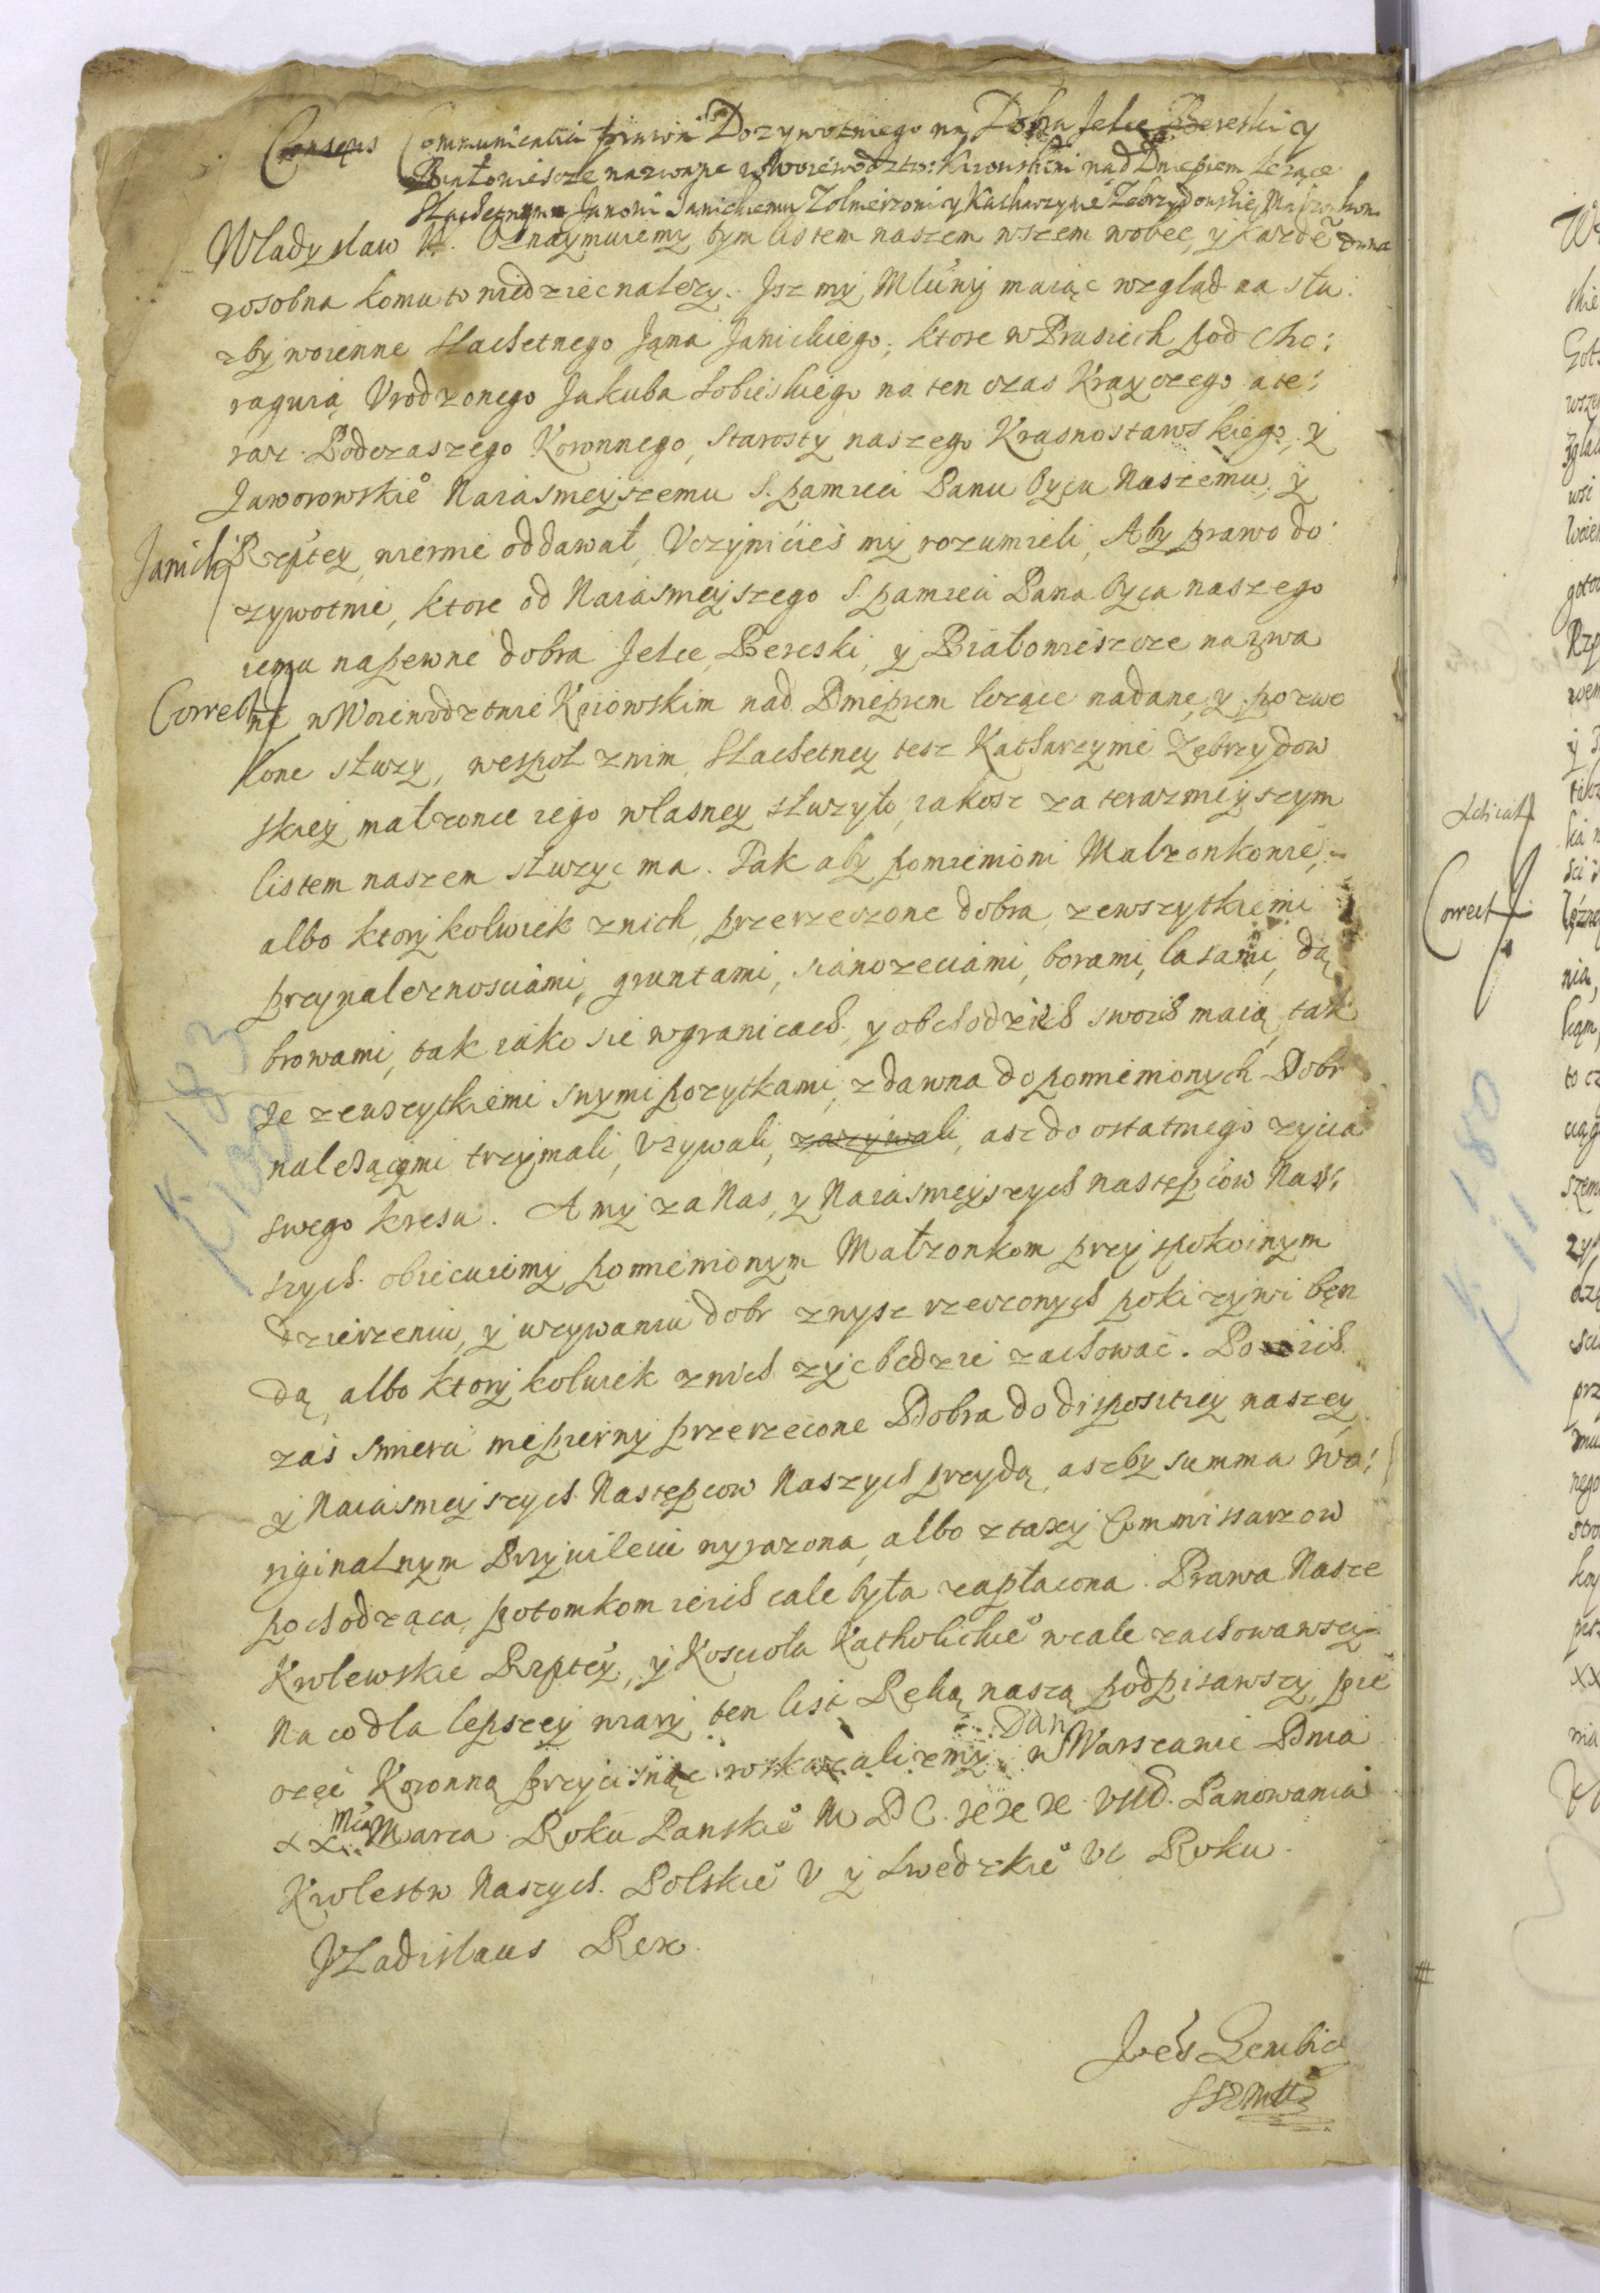 Consens Communicatii prawa Dozywotniego na Dobra Jelce Bereski y
Białomieszcze nazwane w Woiewodztw: Kiiowskim nad Dnieprem lezące
Slachetnemu Janowi Janickiemu Zolnierzowi y Katharzynie Zebrzydowskiey Małzonkom
Wladyslaw IV. Oznaymuiemy tym listem naszem wszem wobec, y kazdeͦ
zosobna komu to wiedziec nalezy. Isz my Mluiąc maiąc wzgląd na słu:
zby woienne Slachetnego Jąna Janickiego, ktore w Prusiech pod Cho:
ragwią Vrodzonego Jakuba Sobieskiego na ten czas Krayczego a te:
raz Podczaszego Koronnego, Starosty naszego Krasnostawskiego, y
Jaworowskieͦ Naiasnieyszemu S. pamieci Panu Oycu Naszemu, y
Janick
Rzptey, wiernie oddawał, Vczynicies my rozumieli, Aby prawo do:
zywotnie, ktore od Naiasnieyszego S. pamieci Pana Oyca naszego
iemu na pewne dobra Jelce Bereski, y Białomieszcze nazwa
Correct
ne w Woiewodztwie Kiiowskim nad Dnieprem lezące nadane, y pozwo
lone słuzy, wespoł z nim Slachetney tesz Katharzynie Zebrzydow
skiey małzonce iego własney słuzyło, iakosz za terazniejszym
listem naszem słuzyc ma. Tak aby pomienioni Małzonkowie,
albo ktorykolwiek z nich, przerzeczone dobra, zewszytkiemi
przynaleznosciami, gruntami, sianozeciami, borami, lasami, dą
browami, tak iako sie w granicach, y obchodzich swoich maią, tak
ze zewszytkiemi inymi pozytkami, z dawna do pomienionych Dobr
nalezącymi trzymali, Vzywali, zazywali, asz do ostatniego zycia
swego kresu. A my za Nas, y Naiasnieyszych nastepcow Na:
szych obiecuiemy pomienionym Małzonkom przy spokoinym
dzierzeniu, y uzywaniu dobr znysz rzeczonych poki zywi będ
dą, albo ktorykolwiek z nich zyc bedzie zachowac. Po ich
zas smierci niepierwy przerzeczone Dobra do dispositiey naszey,
y Naiasnieyszych Nastepcow Naszych przydą, aszby summa w o:
riginalnym Przywileiu wyrazona, albo z taxy Commissarzow
pochodząca, potomkom ieich cale była zapłacona. Prawa Nasze
Krolewskie Rzptey, y Koscioła Katholickieͦ wcale zachowawszy
Na co dla lepszey wiary ten list Ręką naszą podpisawszy, pie
częć Koronną przycisnąc roskazalismy. Dan w Warszawie Dnia
xx. Mca Marca Roku Panskieͦ M D C. xxx VIII. Panowania
Krolestw Naszych. Polskieͦ V y Szwedzkieͦ VI Roku.
Vladislaus Rex.
K. 183